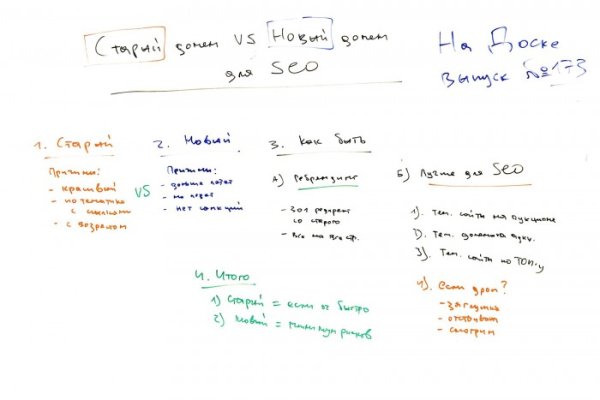 Старый домен VS Новый домен
для SEO
На Доске
выпуск №173
1. Старый
Причины:
- красивый
- по тематике
с ссылками
- с возрастом
VS
2. Новый
Причины:
- дольше
- нет санкций
3. Как быть
А) Ребрендинг
- 301 редирект
со старого
- Все на все стр.
Б) Лучше для SEO
1). Тем. сайты на аукционе
2). Тем. домены аукц.
3). Тем. сайты по ТОП-у
4). Если дроп?
- загнулись
- отстойник
- смотрим
4. Итого
1) Старый = если от быстро
2) Новый = минимум рисков